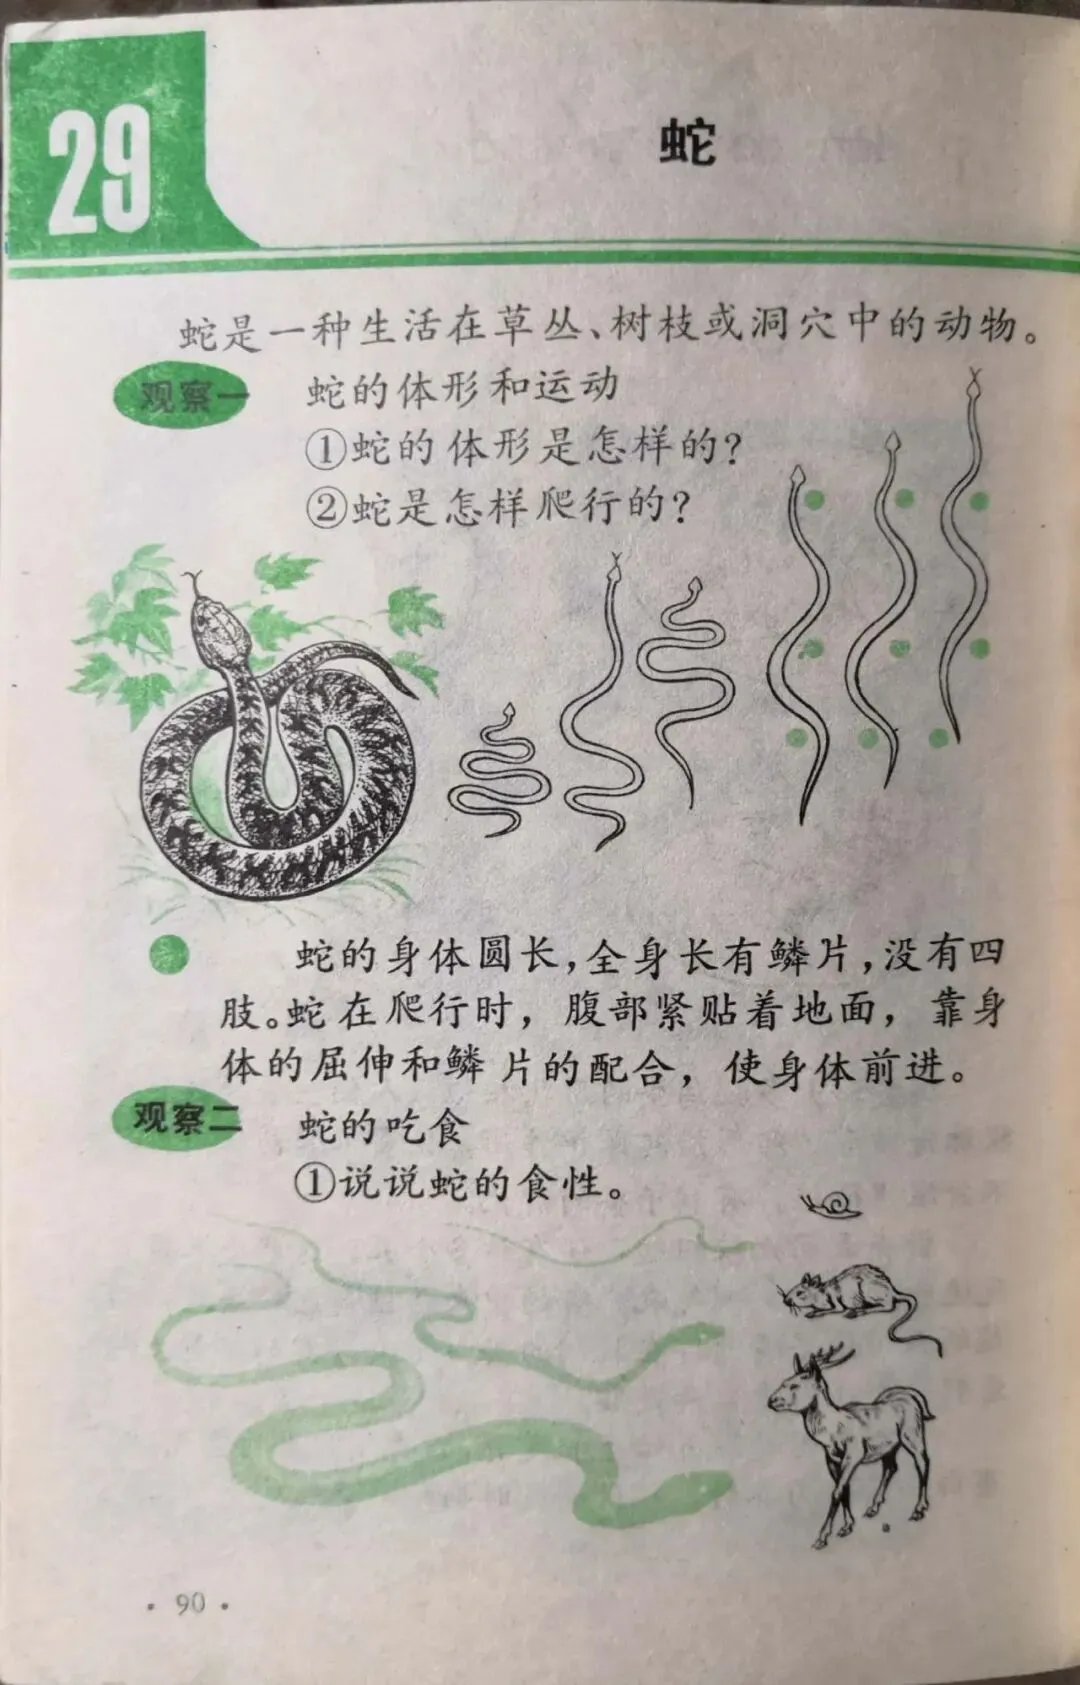 29
蛇
蛇是一种生活在草丛、树枝或洞穴中的动物。
观察一 蛇的体形和运动
①蛇的体形是怎样的?
②蛇是怎样爬行的?
蛇的身体圆长,全身长有鳞片,没有四
肢。蛇在爬行时，腹部紧贴着地面，靠身
体的屈伸和鳞片的配合，使身体前进。
观察二 蛇的吃食
①说说蛇的食性。
·90·